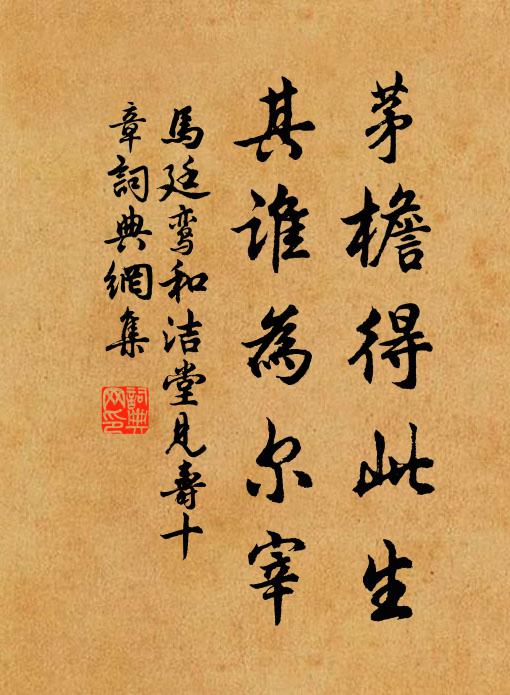 茅檐得此生
其谁為尔宰
馬廷鸾和洁堂見壽十
章詞典網集
詞典
网印